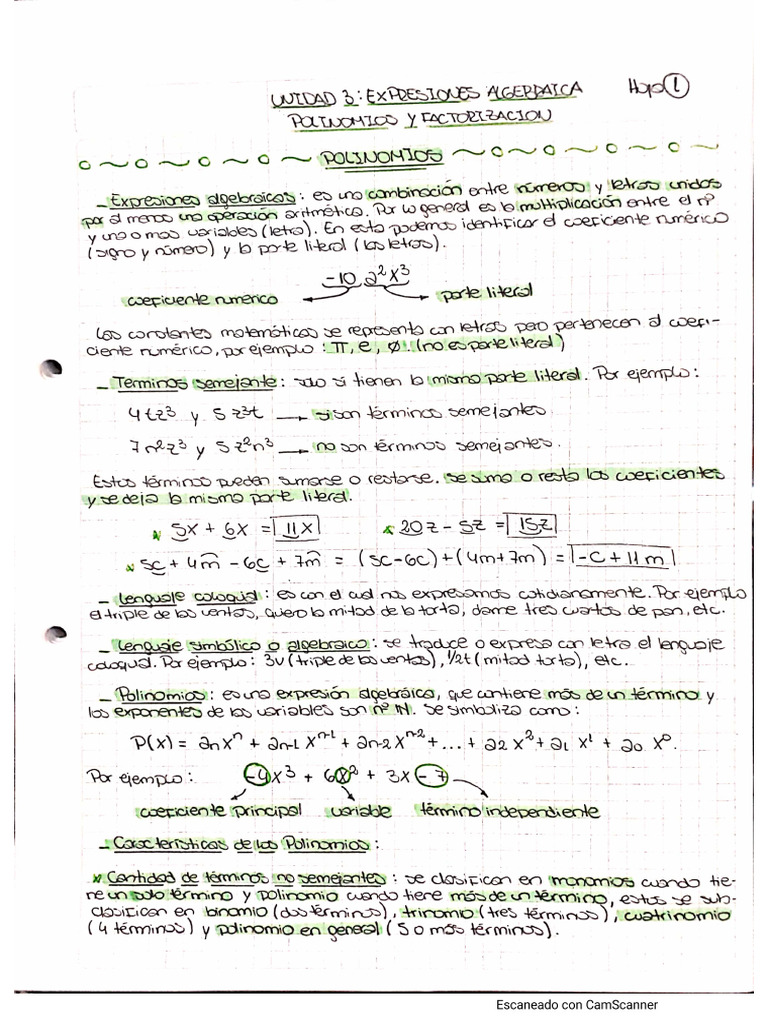 UNIDAD 3: EXPRESIONES ALGEBRAICA Hoja 1
POLINOMIOS Y FACTORIZACION
POLINOMIOS
- Expresiones algebraicas: es una combinación entre números y letras unidas
por al menos una operación aritmética. Por lo general es la multiplicación entre el nº
y una o mas variables (letra). En esta podemos identificar el coeficiente numérico
(signo y número) y la parte literal (las letras).
-10 a²x³
coeficiente numerico parte literal
Las constantes matemáticas se representa con letras pero pertenecen al coefi-
ciente numérico, por ejemplo: π, e, ø (no es parte literal)
- Terminos semejante: solo si tienen la misma parte literal. Por ejemplo:
4tz³ y 5z³t → si son términos semejantes
7n²z³ y 5z²n³ → no son términos semejantes.
Estos términos pueden sumarse o restarse. Se suma o resta los coeficientes
y se deja la misma parte literal.
* 5x + 6x = 11x * 20z - 5z = 15z
* 5c + 4m - 6c + 7m = (5c-6c)+(4m+7m) = -c + 11m
- Lenguaje coloquial: es con el cual nos expresamos cotidianamente. Por ejemplo
el triple de las ventas, quiero la mitad de la torta, dame tres cuartos de pan, etc.
- Lenguaje simbólico o algebraico: se traduce o expresa con letra el lenguaje
coloquial. Por ejemplo: 3v (triple de las ventas), 1/2t (mitad torta), etc.
- Polinomios: es una expresión algebráica, que contiene más de un término y
los exponentes de las variables son nº IN. Se simboliza como:
P(x) = anxⁿ + an-1 xⁿ⁻¹ + an-2 xⁿ⁻² + ... + a2 x² + a1 x¹ + a0 x⁰.
Por ejemplo: -4x³ + 6x² + 3x - 7
coeficiente principal variable término independiente
- Características de los Polinomios:
* Cantidad de términos no semejantes: se clasifican en monomios cuando tie-
ne un solo término y polinomio cuando tiene más de un término, estos se sub-
clasifican en binomio (dos términos), trinomio (tres términos), cuatrinomio
(4 términos) y polinomio en general (5 o más términos).
Escaneado con CamScanner